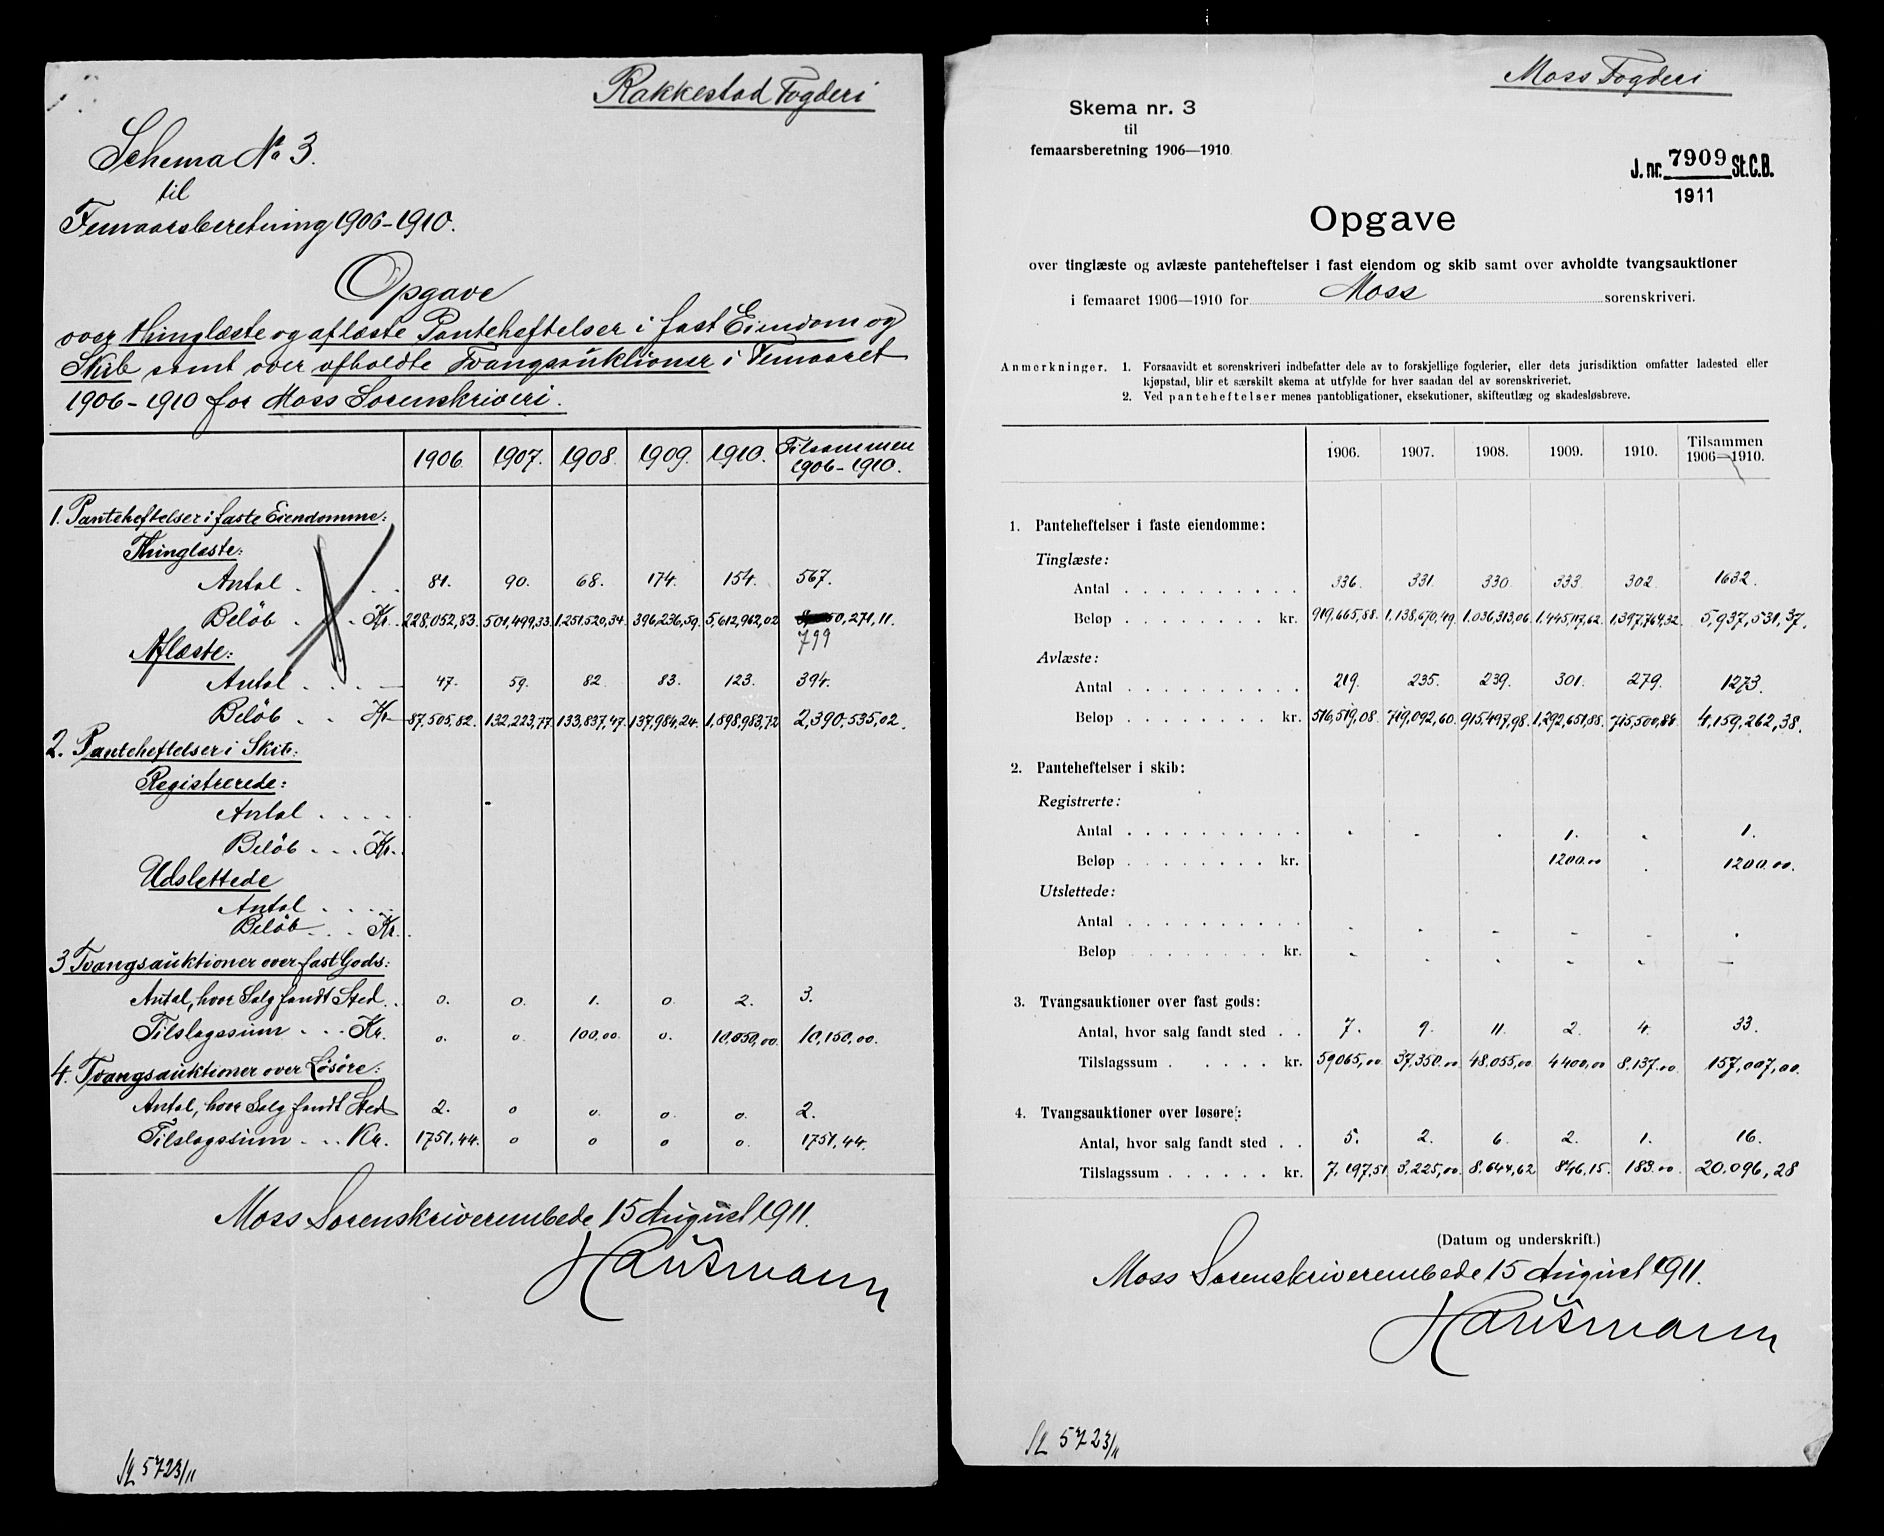 Rakkestad Fogderi
Schema No 3.
til
Femaarsberetning 1906-1910.
Opgave
over thinglæste og aflæste Panteheftelser i fast Eiendom og
Skib samt over afholdte Tvangsauktioner i Femaaret
1906-1910 for Moss Sorenskriveri.
1906. 1907. 1908. 1909. 1910. Tilsammen 1906-1910.
1. Panteheftelser i faste Eiendomme:
Thinglæste:
Antal . . . 81. 90. 68. 174. 154. 567.
Beløb . . Kr. 228.052,83. 501,499,33. 1.251.520,34. 396,236,59. 5,612,962,02 50,271,11.
799
Aflæste:
Antal . . . . 47. 59. 82. 83. 123. 394.
Beløb . . Kr 87,505,82. 132,223,77. 133,837,47. 137,984,24. 1,898,983,72 2,390,535,02.
2. Panteheftelser i Skib:
Registrerede:
Antal . . . . .
Beløb . . . Kr.
Udslettede
Antal . . . .
Beløb . . . Kr.
3 Tvangsauktioner over fast Gods:
Antal, hvor Salg fandt Sted . . 0. 0. 1. 0. 2. 3.
Tilslagssum . . . Kr. 0. 0. 100,00. 0. 10,050,00 10,150,00.
4. Tvangsauktioner over Løsøre:
Antal, hvor Salg fandt Sted 2. 0 0. 0. 0. 2.
Tilslagssum . . . Kr. 1751,44. 0 0 0 0. 1751,44.
Moss Sorenskriverembede 15 August 1911.
Hausmann
5723/11
Moss Fogderi
Skema nr. 3
til
femaarsberetning 1906—1910.
J. nr. 7909 St.C.B.
1911
Opgave
over tinglæste og avlæste panteheftelser i fast eiendom og skib samt over avholdte tvangsauktioner
i femaaret 1906—1910 for Moss sorenskriveri.
Anmerkninger. 1. Forsaavidt et sorenskriveri indbefatter dele av to forskjellige fogderier, eller dets jurisdiktion omfatter ladested eller
kjøpstad, blir et særskilt skema at utfylde for hver saadan del av sorenskriveriet.
2. Ved panteheftelser menes pantobligationer, eksekutioner, skifteutlæg og skadesløsbreve.
1906. 1907. 1908. 1909. 1910. Tilsammen 1906—1910.
1. Panteheftelser i faste eiendomme:
Tinglæste:
Antal . . . . . . . . . . 336. 331. 330. 333. 302. 1632.
Beløp . . . . . . . . kr. 919,665,88. 1,138,670,49. 1.036,313,06. 1.445,117,62. 1,397,764,32. 5,937,531,37.
Avlæste:
Antal . . . . . . . . . . 219. 235. 239. 301. 279. 1273.
Beløp . . . . . . . . kr. 516,519,08. 719,092,60. 915,497,98. 1,292,651,88. 715,500,84. 4,159,262,38.
2. Panteheftelser i skib:
Registrerte:
Antal . . . . . . . . . . - - - 1. - 1.
Beløp . . . . . . . . kr. 1200.00 1200.00.
Utslettede:
Antal . . . . . . . . . . - - - - - -
Beløp . . . . . . . . kr. - - - - - —
3. Tvangsauktioner over fast gods:
Antal, hvor salg fandt sted . . 7. 9. 11. 2. 4. 33.
Tilslagssum . . . . . kr. 59065,00. 37,350.00 48.055,00 4400,00 8.137.00. 157,007,00.
4. Tvangsauktioner over løsøre:
Antal, hvor salg fandt sted . . 5. 2. 6. 2. 1. 16.
Tilslagssum . . . . . . kr. 7,197,51. 3,225,00. 8.644,62 846,15. 183.00. 20,096,28
(Datum og underskrift.)
Moss Sorenskriverembede 15 August 1911.
Hausmann
5723/11